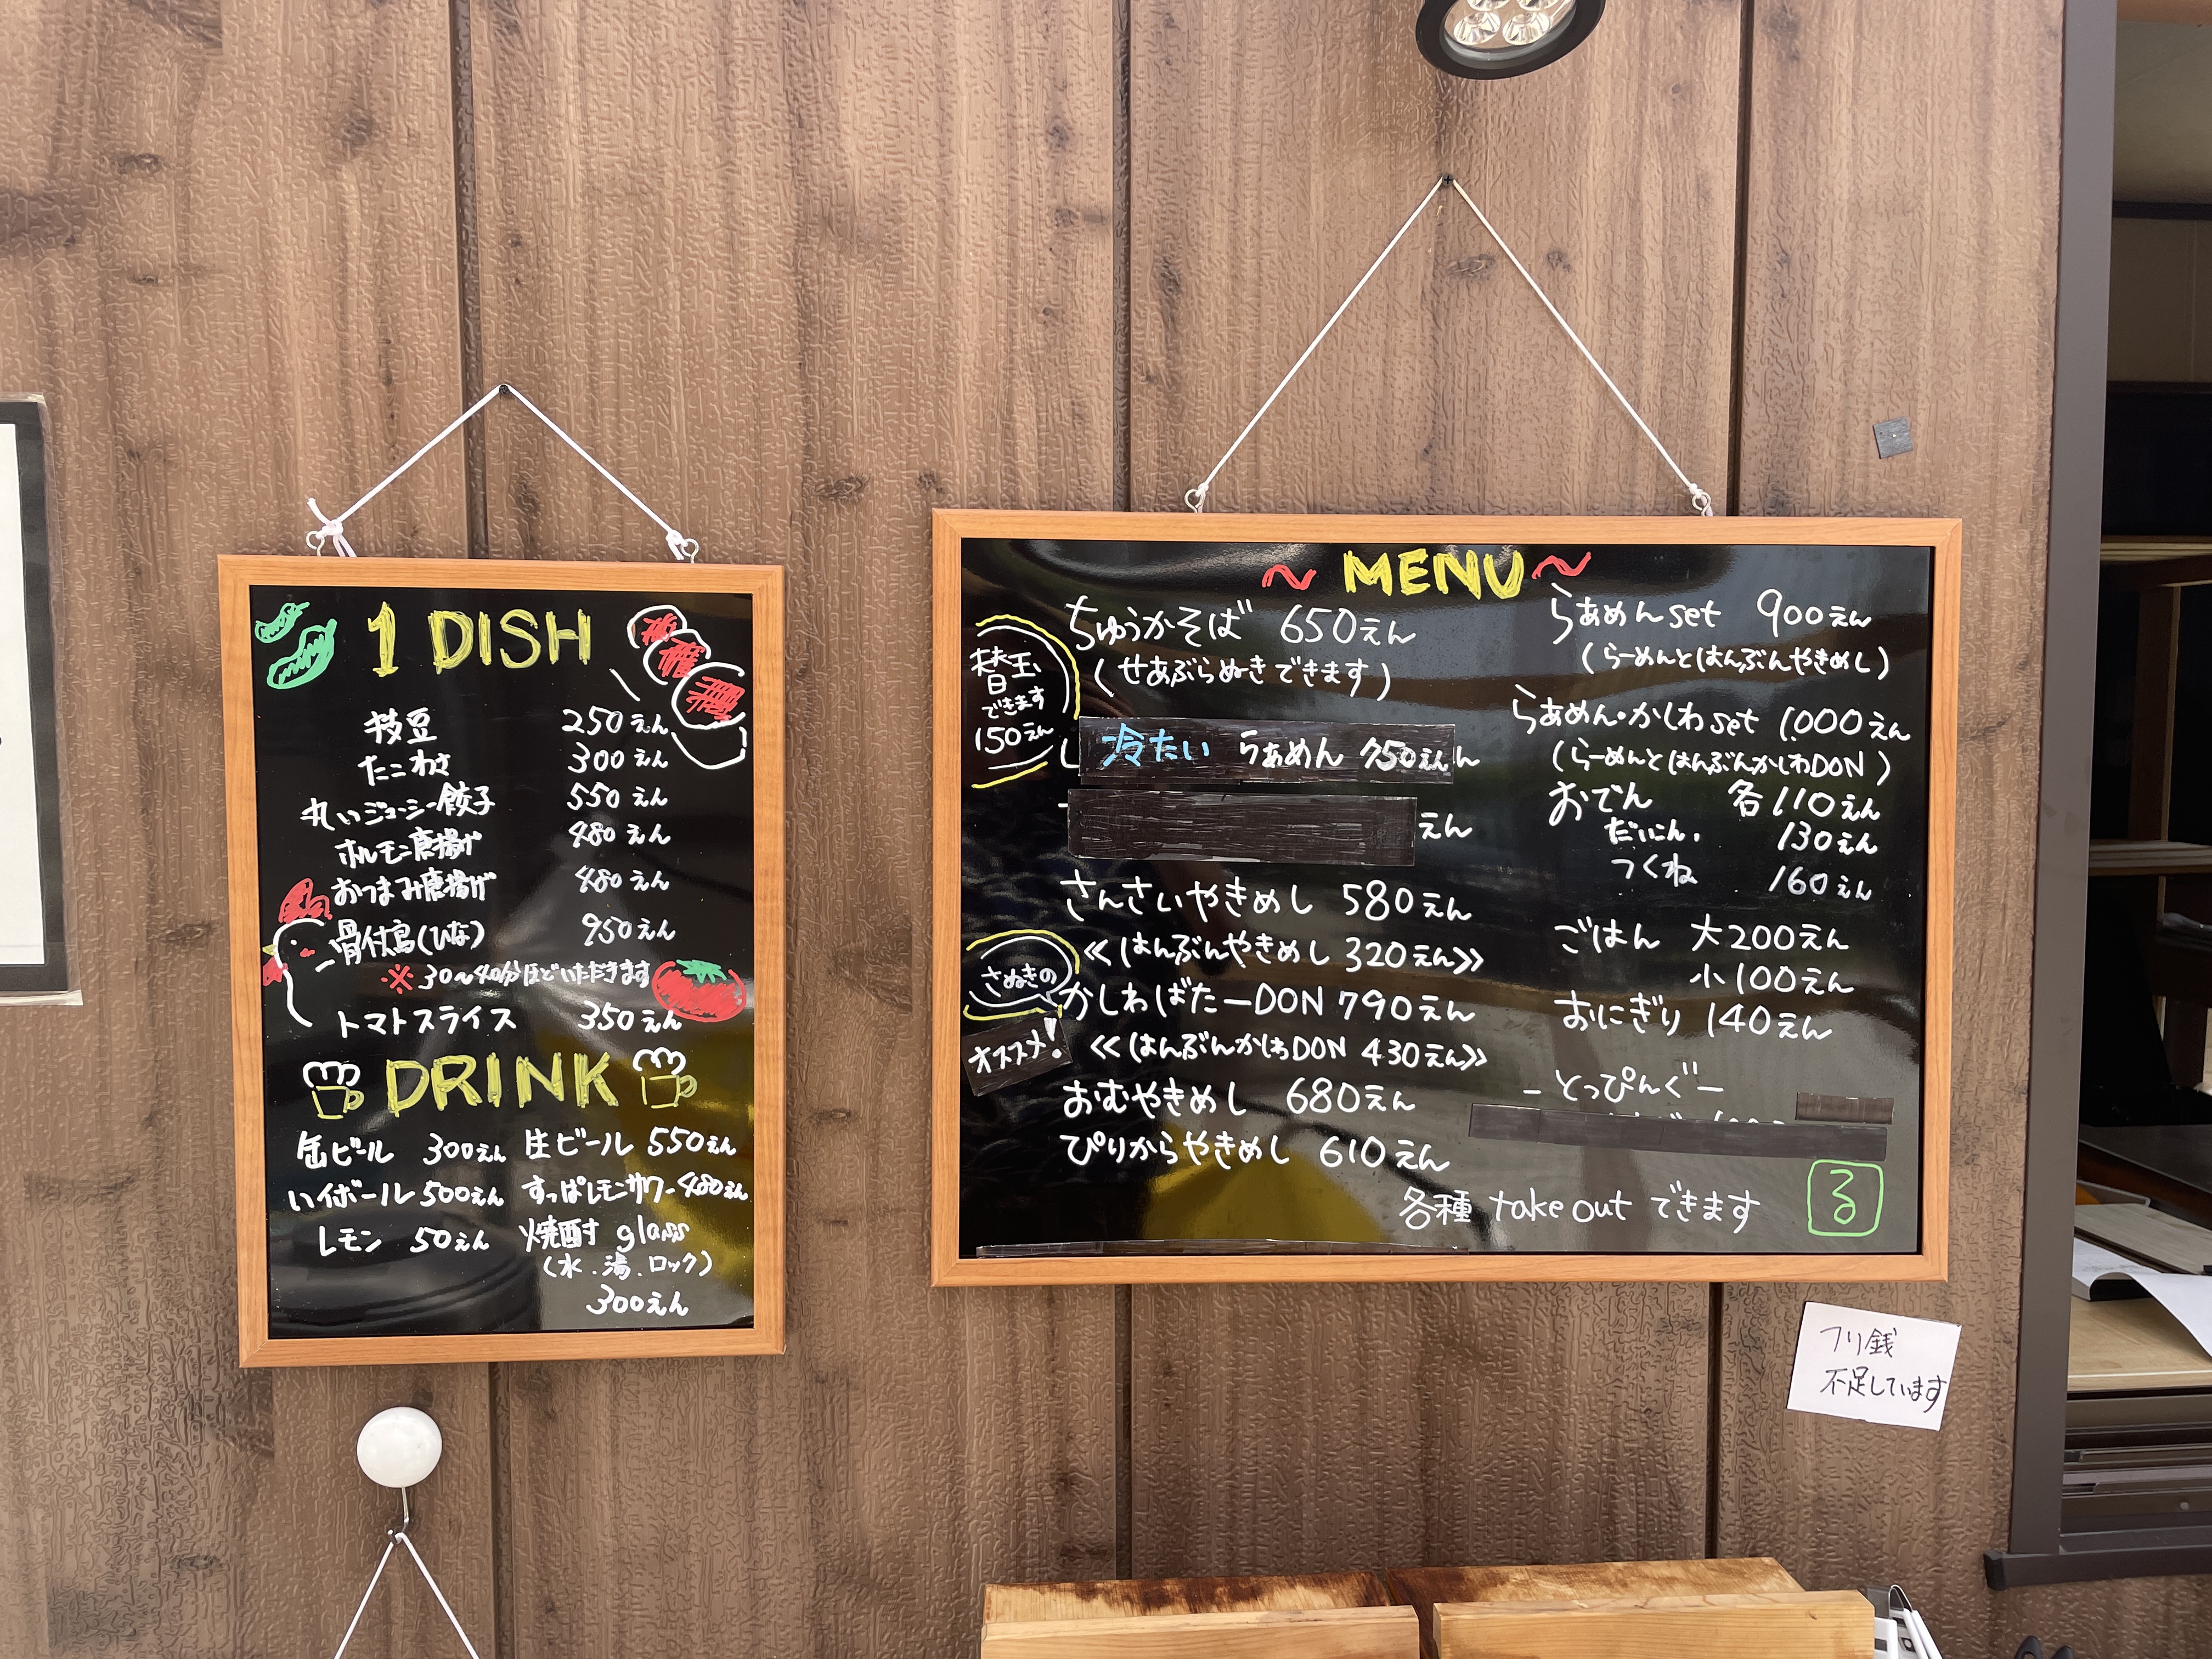 1 DISH
枝豆 250えん
たこわさ 300えん
丸いジューシー餃子 550えん
ホルモン唐揚げ 480えん
おつまみ唐揚げ 480えん
骨付鳥(ひな) 950えん
※30〜40分ほどいただきます
トマトスライス 350えん
DRINK
缶ビール 300えん 生ビール 550えん
ハイボール 500えん すっぱレモンサワー 480えん
レモン 50えん 焼酎 glass
(水.湯.ロック)
300えん
〜MENU〜
替玉
できます
150えん
ちゅうかそば 650えん
(せあぶらぬきできます)
冷たい らぁめん 750えん
えん
さんさいやきめし 580えん
≪はんぶんやきめし 320えん≫
さぬきの
オススメ!
かしわばたーDON 790えん
≪はんぶんかしわDON 430えん≫
おむやきめし 680えん
ぴりからやきめし 610えん
らぁめんset 900えん
(らーめんとはんぶんやきめし)
らぁめん・かしわset 1,000えん
(らーめんとはんぶんかしわDON)
おでん 各110えん
だいこん. 130えん
つくね 160えん
ごはん 大200えん
小100えん
おにぎり 140えん
-とっぴんぐー
各種 take out できます
る
フリ銭
不足しています